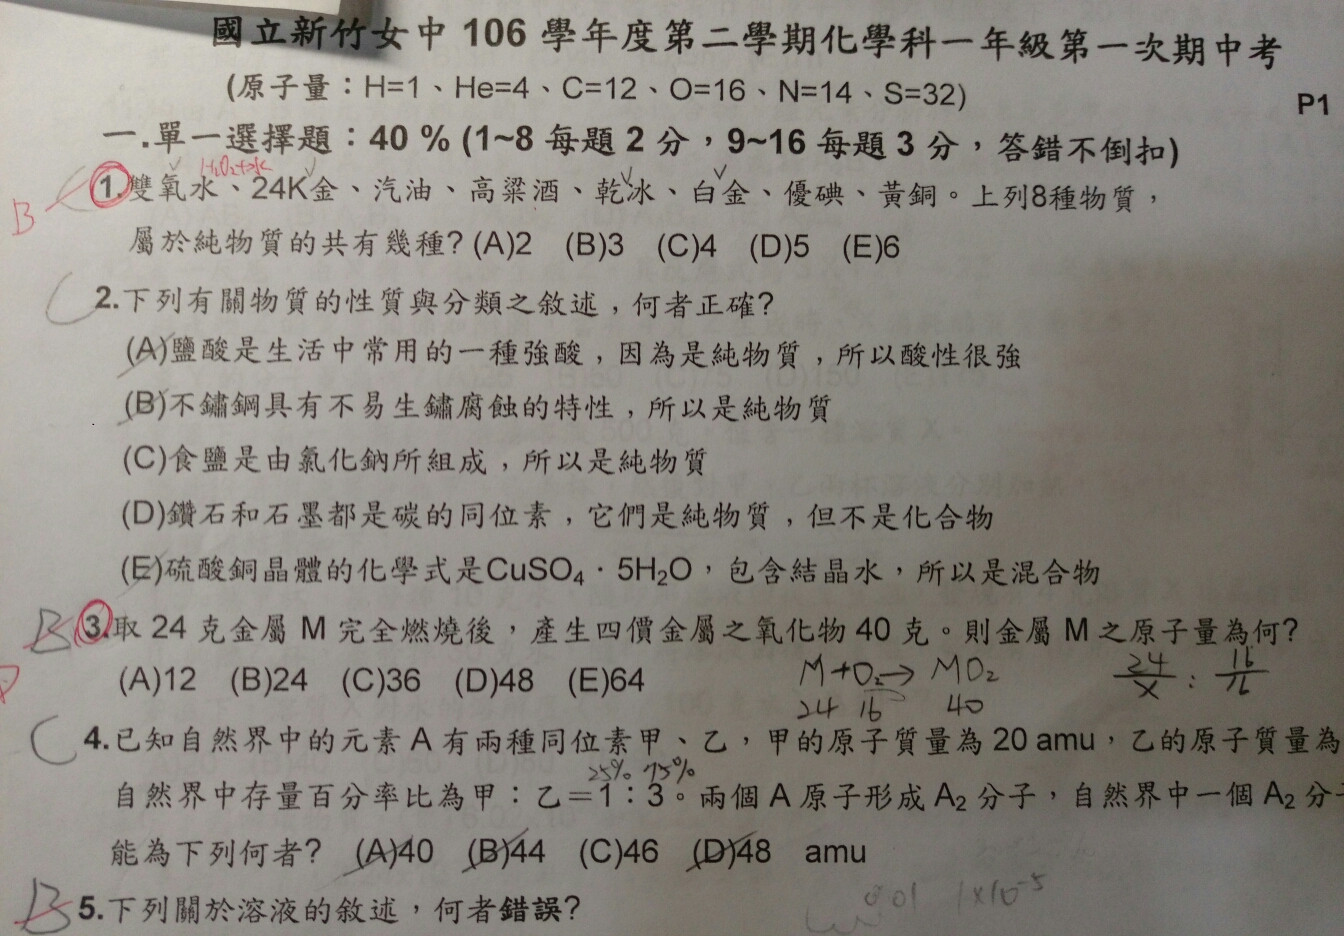 國立新竹女中 106 學年度第二學期化學科一年級第一次期中考
(原子量：H=1、He=4、C=12、O=16、N=14、S=32)
P1
一.單一選擇題：40 % (1~8 每題 2 分，9~16 每題 3 分，答錯不倒扣)
H₂O₂+水
B 1.雙氧水、24K金、汽油、高粱酒、乾冰、白金、優碘、黃銅。上列8種物質，
屬於純物質的共有幾種? (A)2 (B)3 (C)4 (D)5 (E)6
C 2.下列有關物質的性質與分類之敘述，何者正確?
(A)鹽酸是生活中常用的一種強酸，因為是純物質，所以酸性很強
(B)不鏽鋼具有不易生鏽腐蝕的特性，所以是純物質
(C)食鹽是由氯化鈉所組成，所以是純物質
(D)鑽石和石墨都是碳的同位素，它們是純物質，但不是化合物
(E)硫酸銅晶體的化學式是CuSO₄．5H₂O，包含結晶水，所以是混合物
B 3.取 24 克金屬 M 完全燃燒後，產生四價金屬之氧化物 40 克。則金屬 M 之原子量為何?
(A)12 (B)24 (C)36 (D)48 (E)64
M+O₂→ MO₂
24 16 40
24/x : 16/16
C 4.已知自然界中的元素 A 有兩種同位素甲、乙，甲的原子質量為 20 amu，乙的原子質量為
25% 75%
自然界中存量百分率比為甲：乙＝1：3。兩個 A 原子形成 A₂ 分子，自然界中一個 A₂ 分子
能為下列何者? (A)40 (B)44 (C)46 (D)48 amu
B 5.下列關於溶液的敘述，何者錯誤?
0.01 1×10⁻⁵